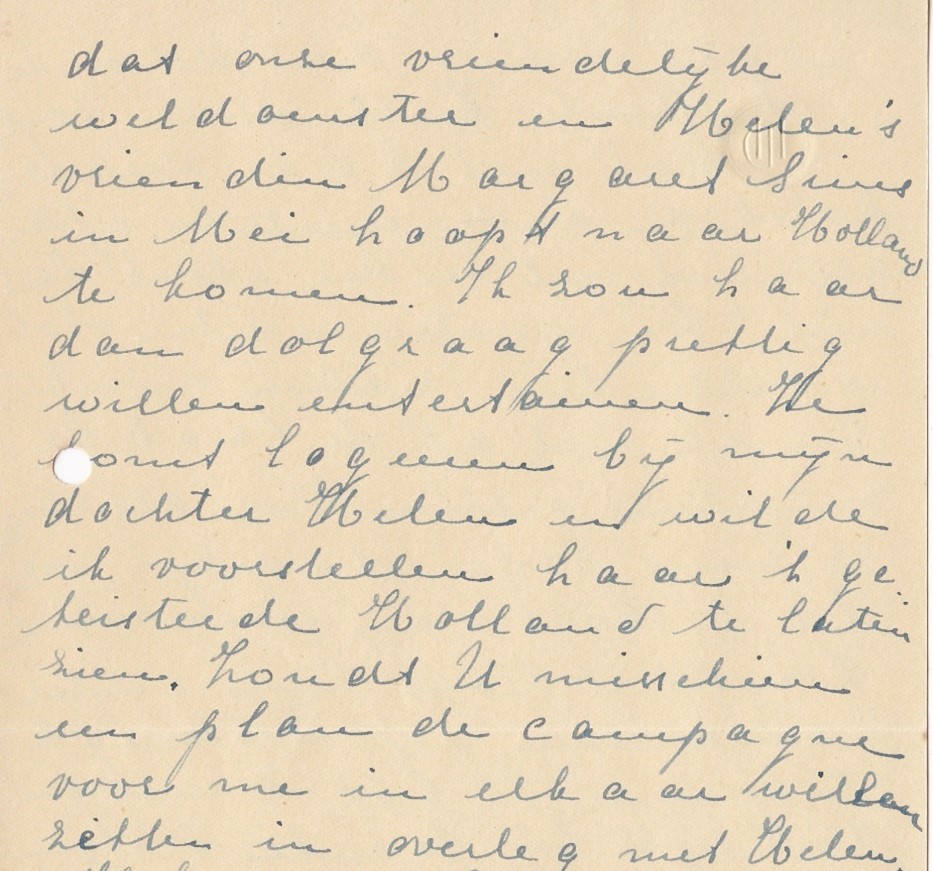 dat onze vriendelijke
weldoenster en Helen's
vriendin Margaret Sims
in Mei hoopt naar Holland
te komen. Ik zou haar
dan dolgraag prettig
willen entertainen. Ze
komt logeeren bij mijn
dochter Helen en wilde
ik voorstellen haar 't ge
teisterde Holland te laten
zien. Zoudt U misschien
een plan de campagne
voor me in elkaar willen
zetten in overleg met Helen.